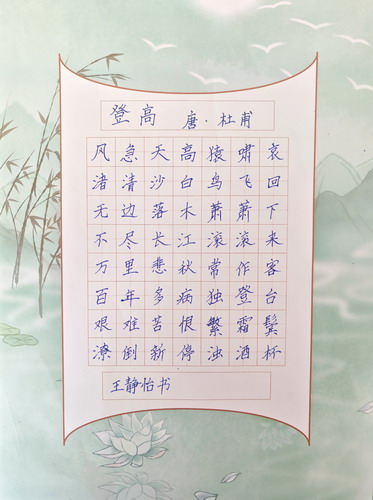 登高 唐·杜甫
风急天高猿啸哀
渚清沙白鸟飞回
无边落木萧萧下
不尽长江滚滚来
万里悲秋常作客
百年多病独登台
艰难苦恨繁霜鬓
潦倒新停浊酒杯
王静怡书